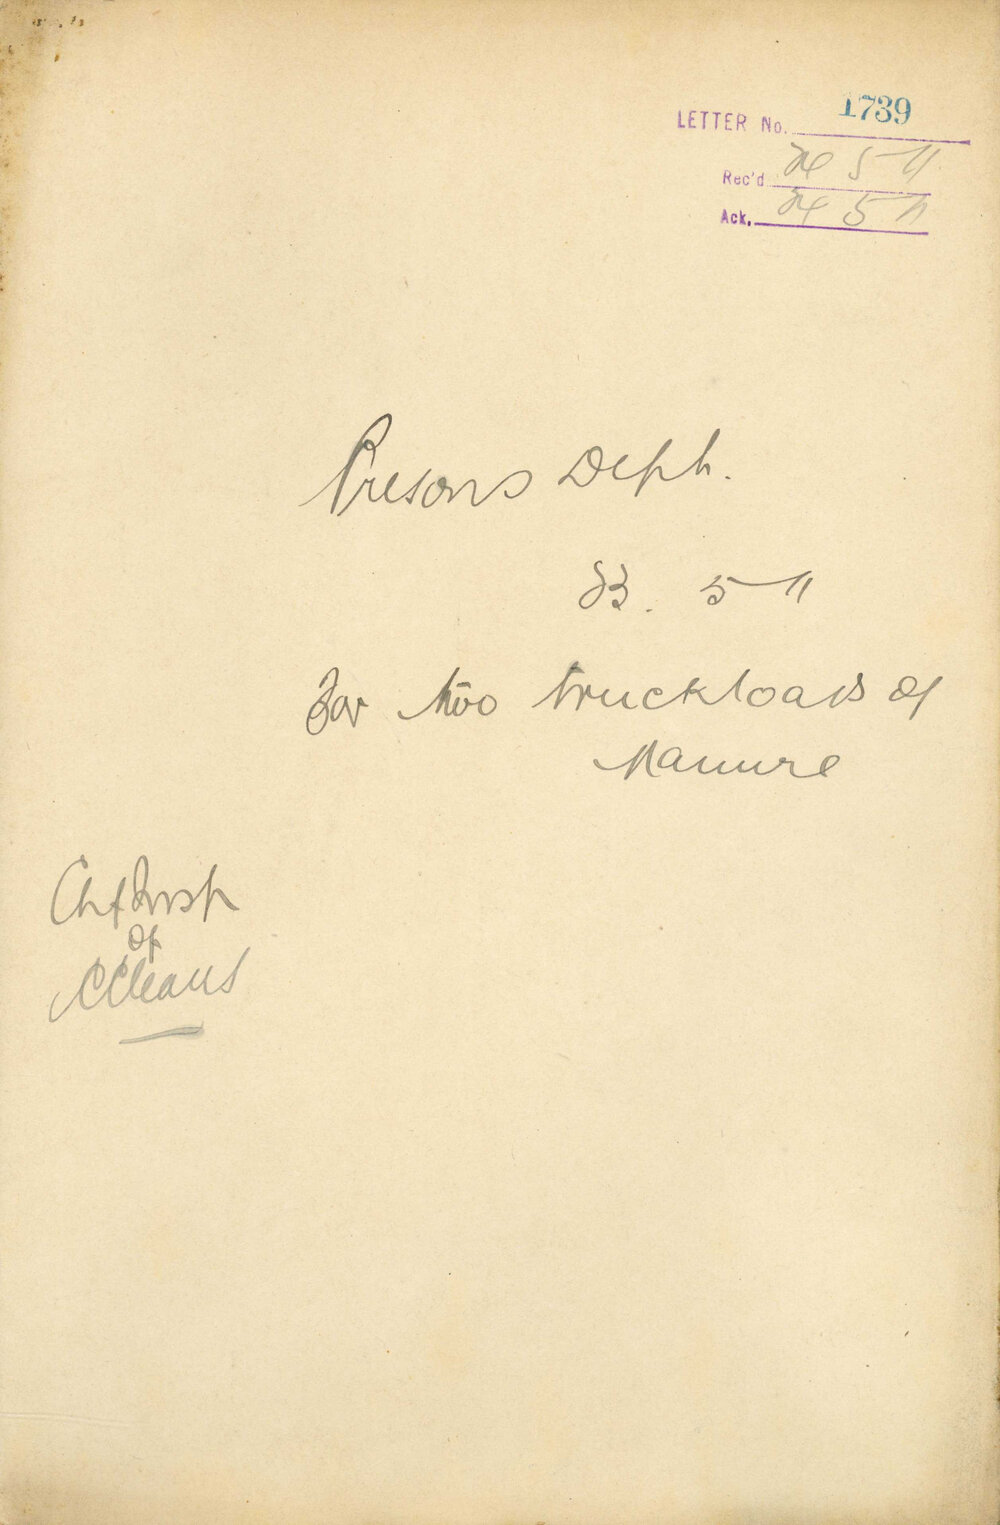 LETTER No. 1739
Rec'd 24 5 11
Ack. 24 5 11
Prisons Dept.
23. 5 11
For two truckloads of
Manure
Chf Insp
of